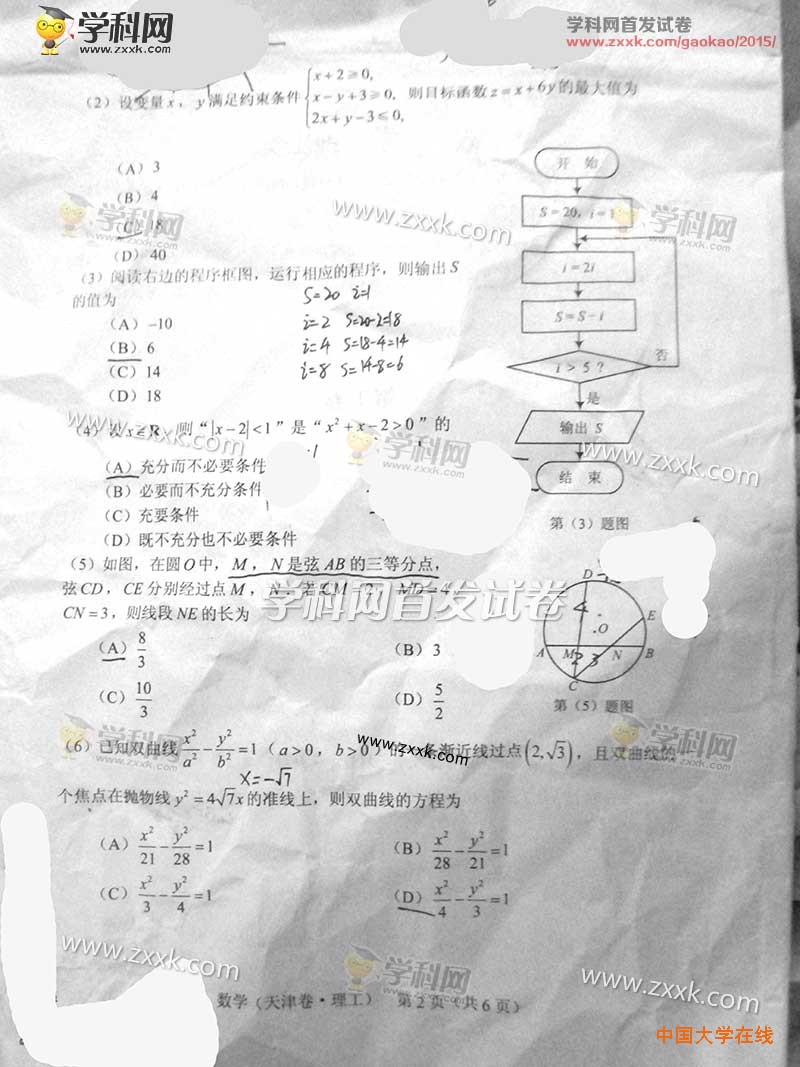 学科网
www.zxxk.com
学科网首发试卷
www.zxxk.com/gaokao/2015/
(2) 设变量 x,y 满足约束条件 { x+2≥0, x−y+3≥0, 2x+y−3≤0, 则目标函数 z=x+6y 的最大值为
(A) 3
(B) 4
(C) 18
(D) 40
(3) 阅读右边的程序框图，运行相应的程序，则输出 S
的值为
(A) −10
(B) 6
(C) 14
(D) 18
S=20 i=1
i=2 S=20-2=18
i=4 S=18-4=14
i=8 S=14-8=6
开 始
S=20, i=1
i=2i
S=S−i
i>5?
否
是
输出 S
结 束
第（3）题图
(4) 设 x∈R，则“|x−2|<1”是“x²+x−2>0”的
(A) 充分而不必要条件
(B) 必要而不充分条件
(C) 充要条件
(D) 既不充分也不必要条件
(5) 如图，在圆 O 中，M，N 是弦 AB 的三等分点，
弦 CD，CE 分别经过点 M，N．若 CM=2，MD=4，
CN=3，则线段 NE 的长为
(A) 8/3
(B) 3
(C) 10/3
(D) 5/2
D
E
4
O
A M N B
2 3
C
第（5）题图
(6) 已知双曲线 x²/a² − y²/b² =1（a>0，b>0）的一条渐近线过点(2,√3)，且双曲线的一
x=-√7
个焦点在抛物线 y²=4√7x 的准线上，则双曲线的方程为
(A) x²/21 − y²/28 =1
(B) x²/28 − y²/21 =1
(C) x²/3 − y²/4 =1
(D) x²/4 − y²/3 =1
数学（天津卷·理工） 第 2 页（共 6 页）
学科网首发试卷
www.zxxk.com
中国大学在线